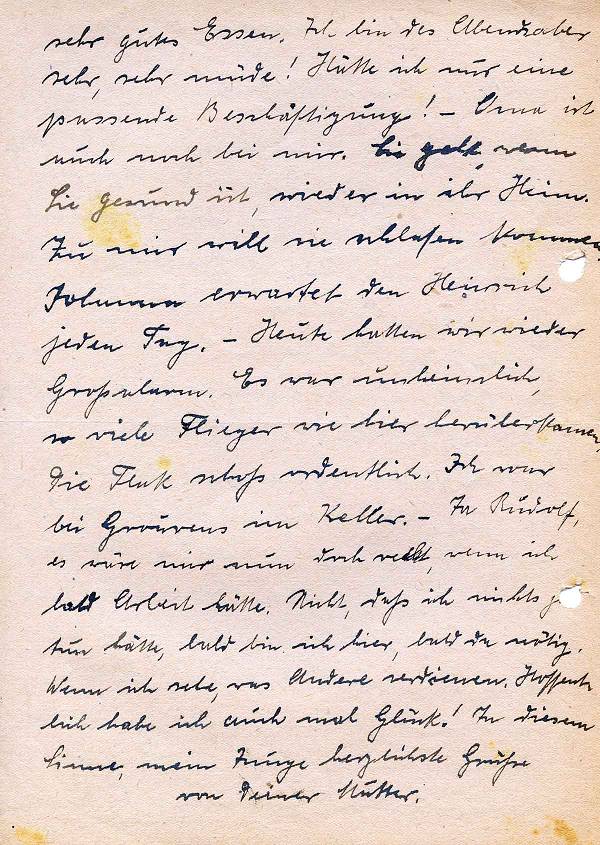 sehr gutes Essen. Ich bin des Abends aber
sehr, sehr müde! Hätte ich nur eine
passende Beschäftigung! – Oma ist
auch noch bei mir. Sie geht, wenn
Sie gesund ist, wieder in ihr Heim.
Zu mir will sie schlafen kommen.
Johanna erwartet den Heinrich
jeden Tag. – Heute hatten wir wieder
Großalarm. Es war unheimlich,
so viele Flieger wie hier herüberkamen,
die Flak schoß ordentlich. Ich war
bei Grouvens im Keller. – Ja Rudolf,
es wäre mir nun doch recht, wenn ich
bald Arbeit hätte. Nicht, daß ich nichts
tun hätte, bald bin ich hier, bald da nötig.
Wenn ich sehe, was Andere verdienen. Hoffent
lich habe ich auch mal Glück! In diesem
Sinne, mein Junge herzlichste Grüße
von Deiner Mutter.